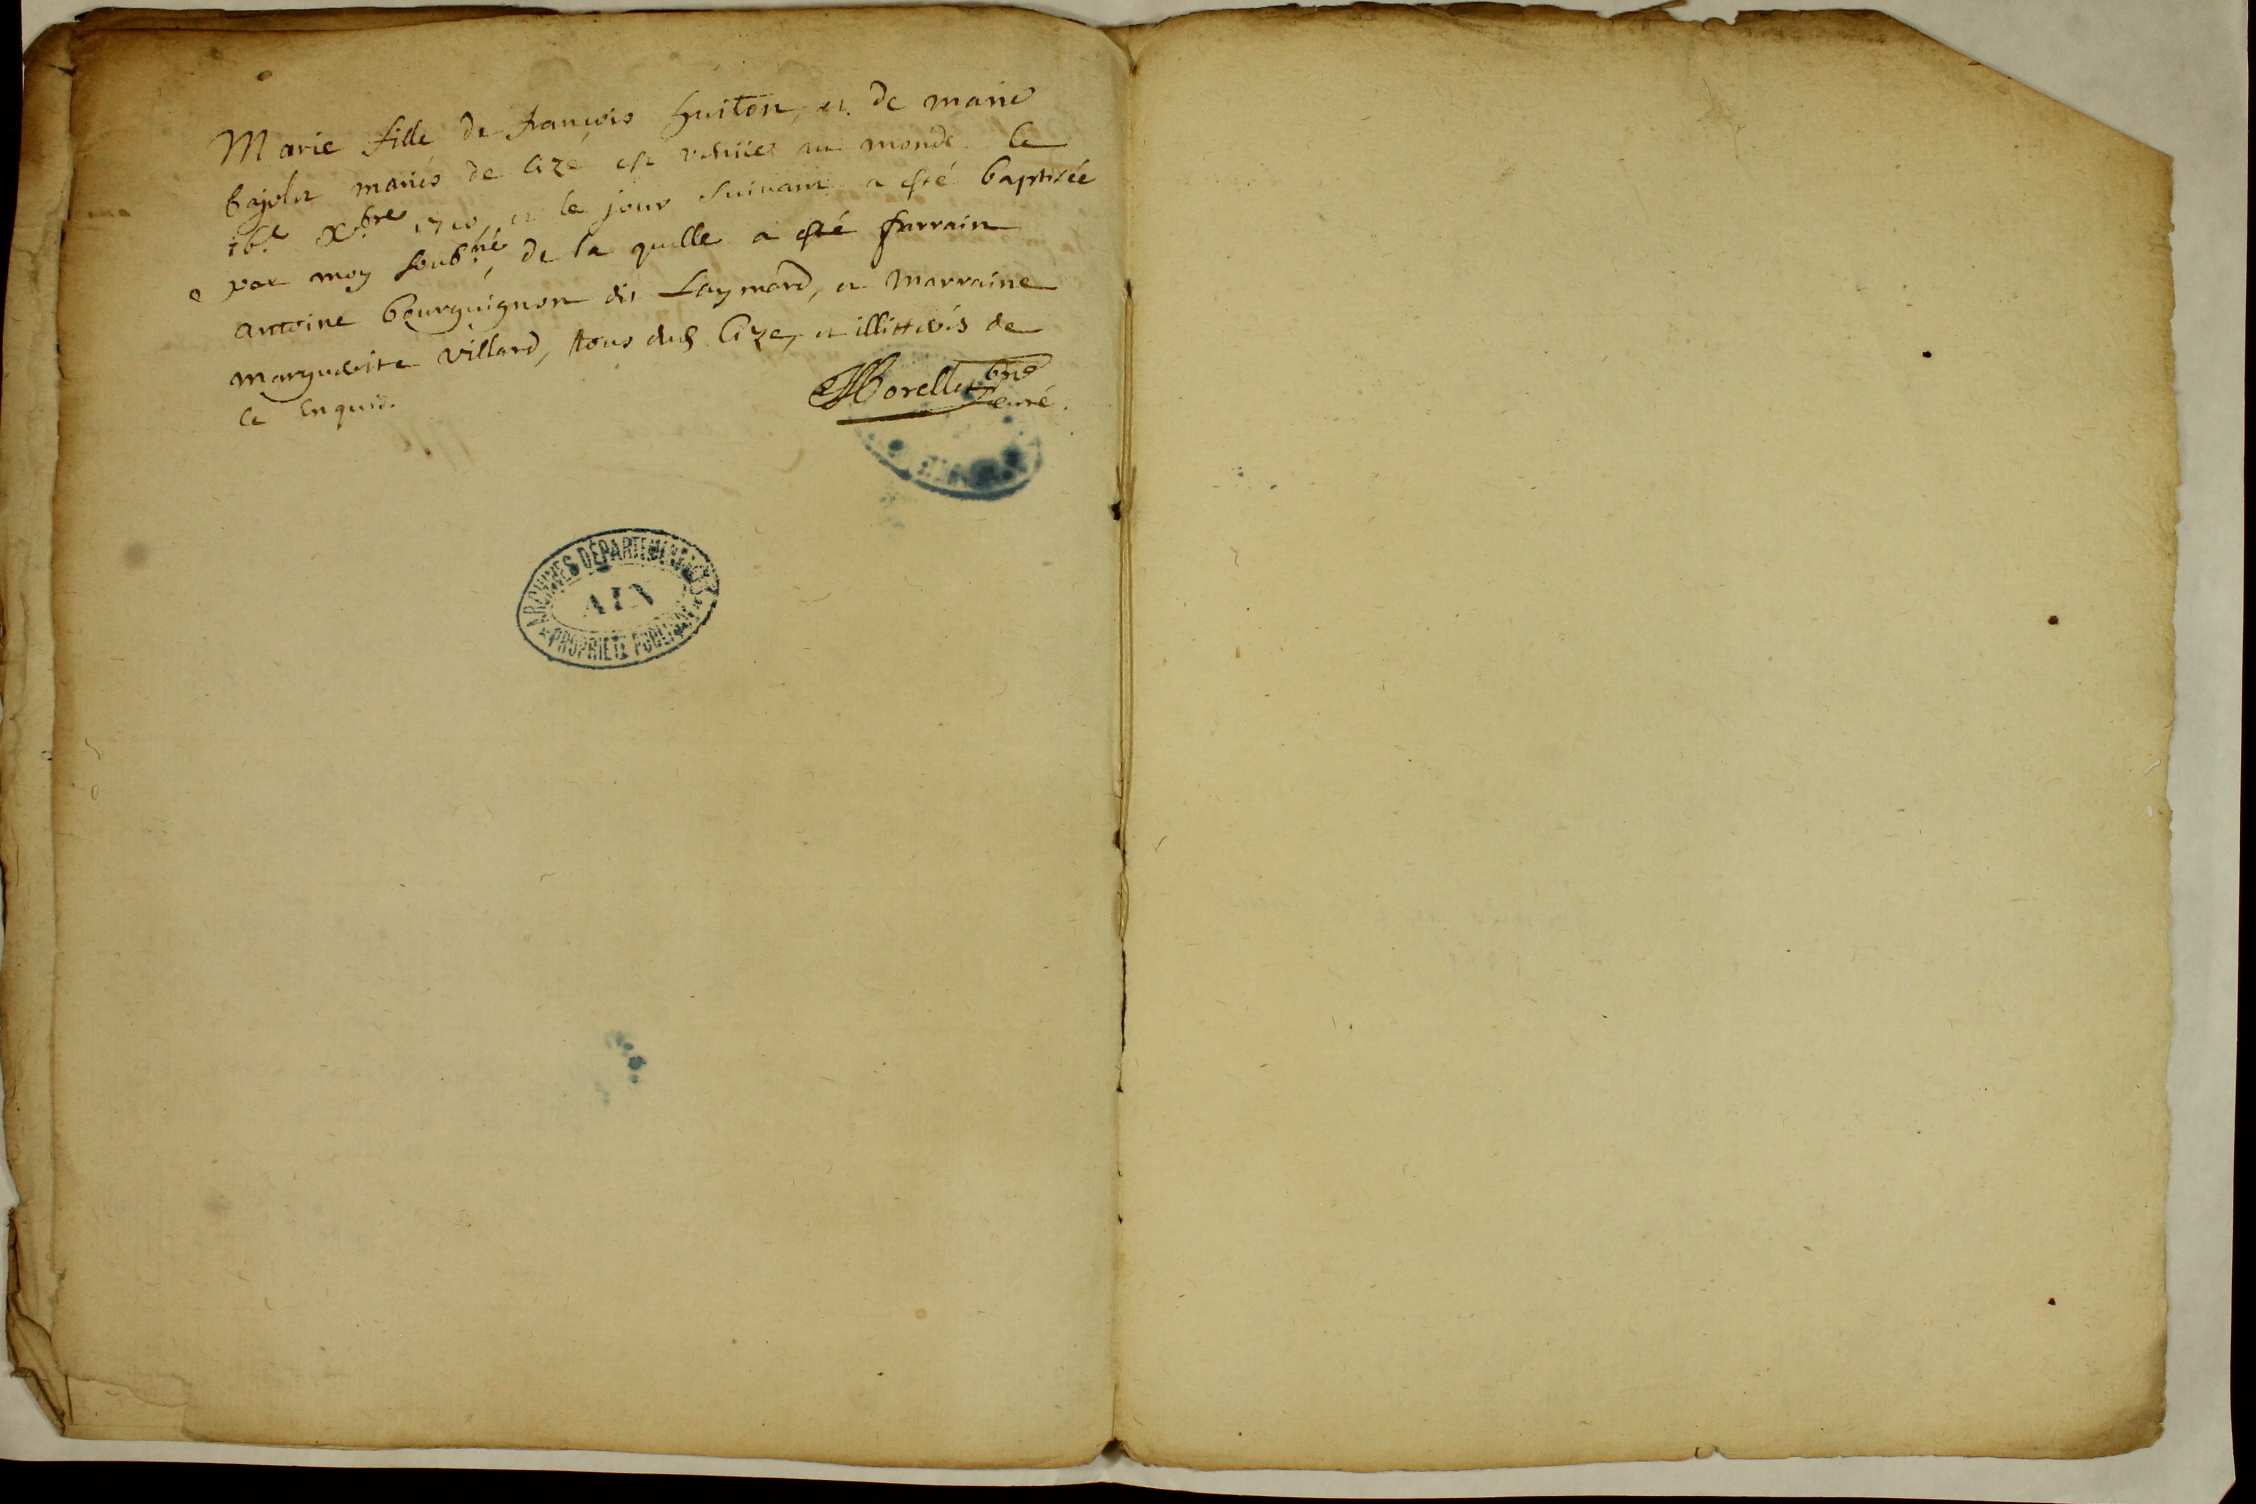 Marie fille de françois huiton, et de marie
bajolet mariés de Cize est venüe au monde le
16.e Xbre 1710 et le jour suivant a esté baptisée
par moy soubné, de la quelle a esté parrain
antoine bourguignon dit Laymard, et marraine
marguerite villard, tous dud. Cize, et illitterés de
ce Enquis.
Morellet
curé.
ARCHIVES DÉPARTEMENTALES
AIN
PROPRIÉTÉ PUBLIQUE